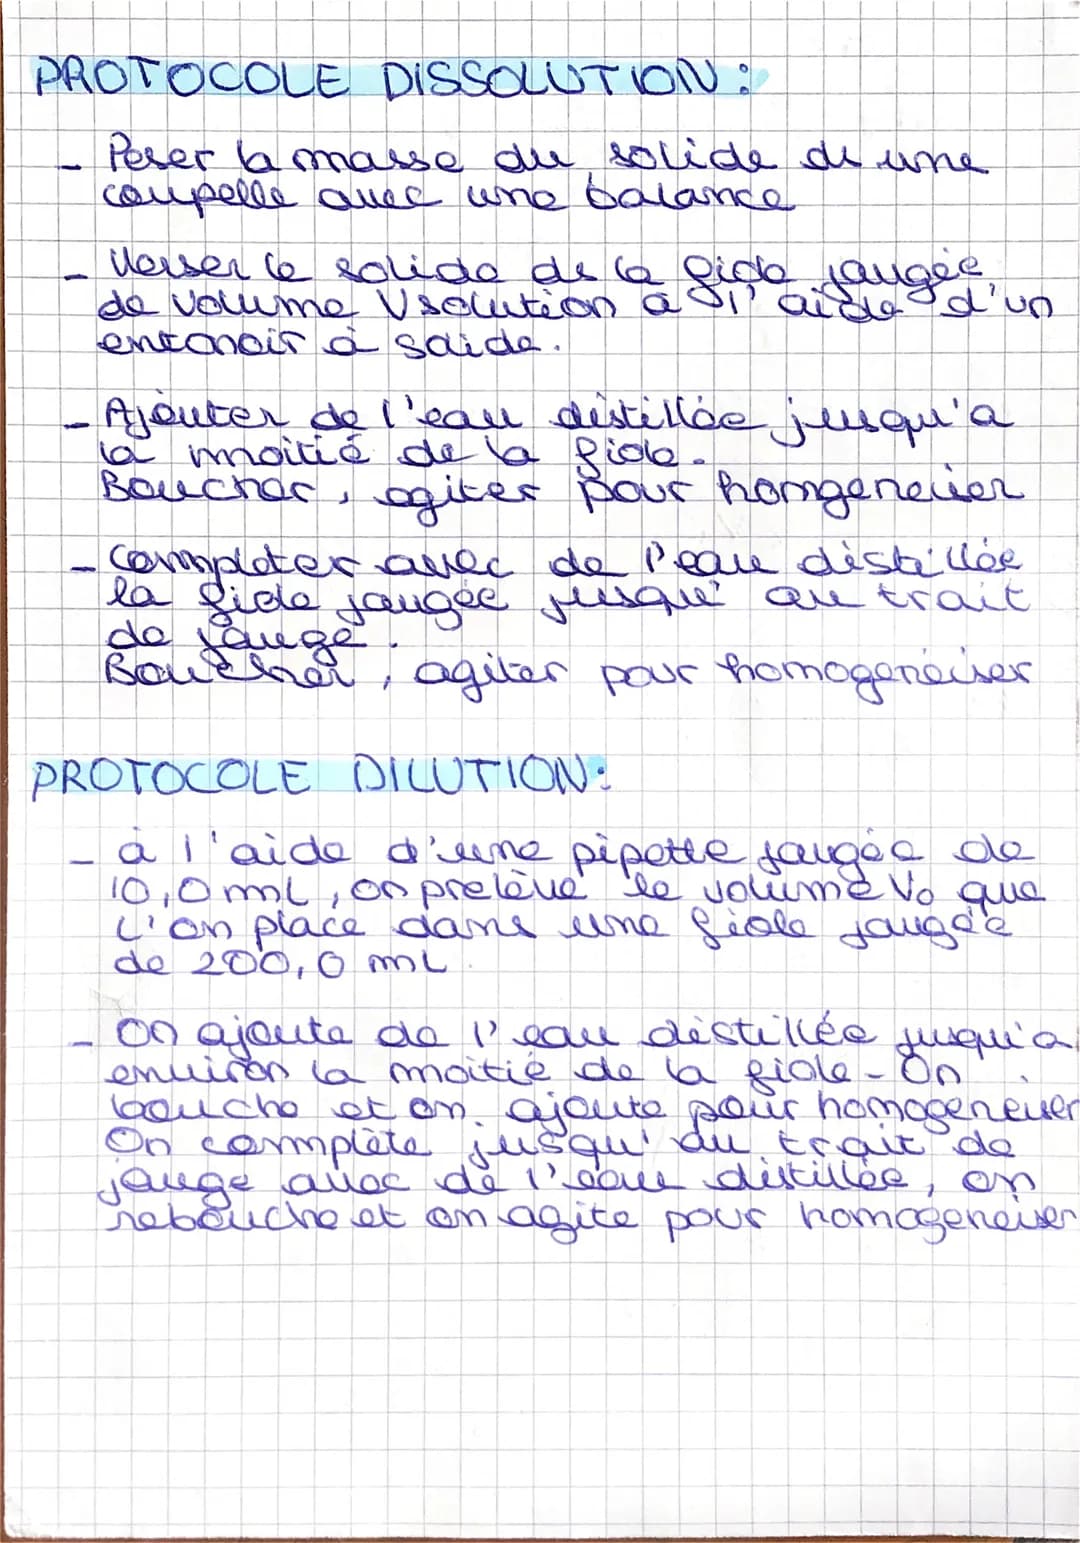 PROTOCOLE DISSOLUTION :
- Peser la masse du solide ds une
coupelle avec une balance
- Verser le solide ds la fiole jaugée
de volume Vsolution à l'aide d'un
entonoir à solide.
- Ajouter de l'eau distillée jusqu'a
la moitié de la fiole.
Boucher, agiter pour homgeneiser
- Completer avec de l'eau distillée
la fiole jaugée jusqu' au trait
de jauge.
Boucher, agiter pour homogenéiser
PROTOCOLE DILUTION:
- à l'aide d'une pipette jaugée de
10,0 mL, on prelève le volume V0 que
L'on place dans une fiole jaugée
de 200,0 mL
- On ajoute de l'eau distillée jusqu'a
environ la moitié de la fiole - On
bouche et on ajoute pour homogeneiser
On complète jusqu' au trait de
jauge avec de l'eau distillée, on
rebouche et on agite pour homogeneiser